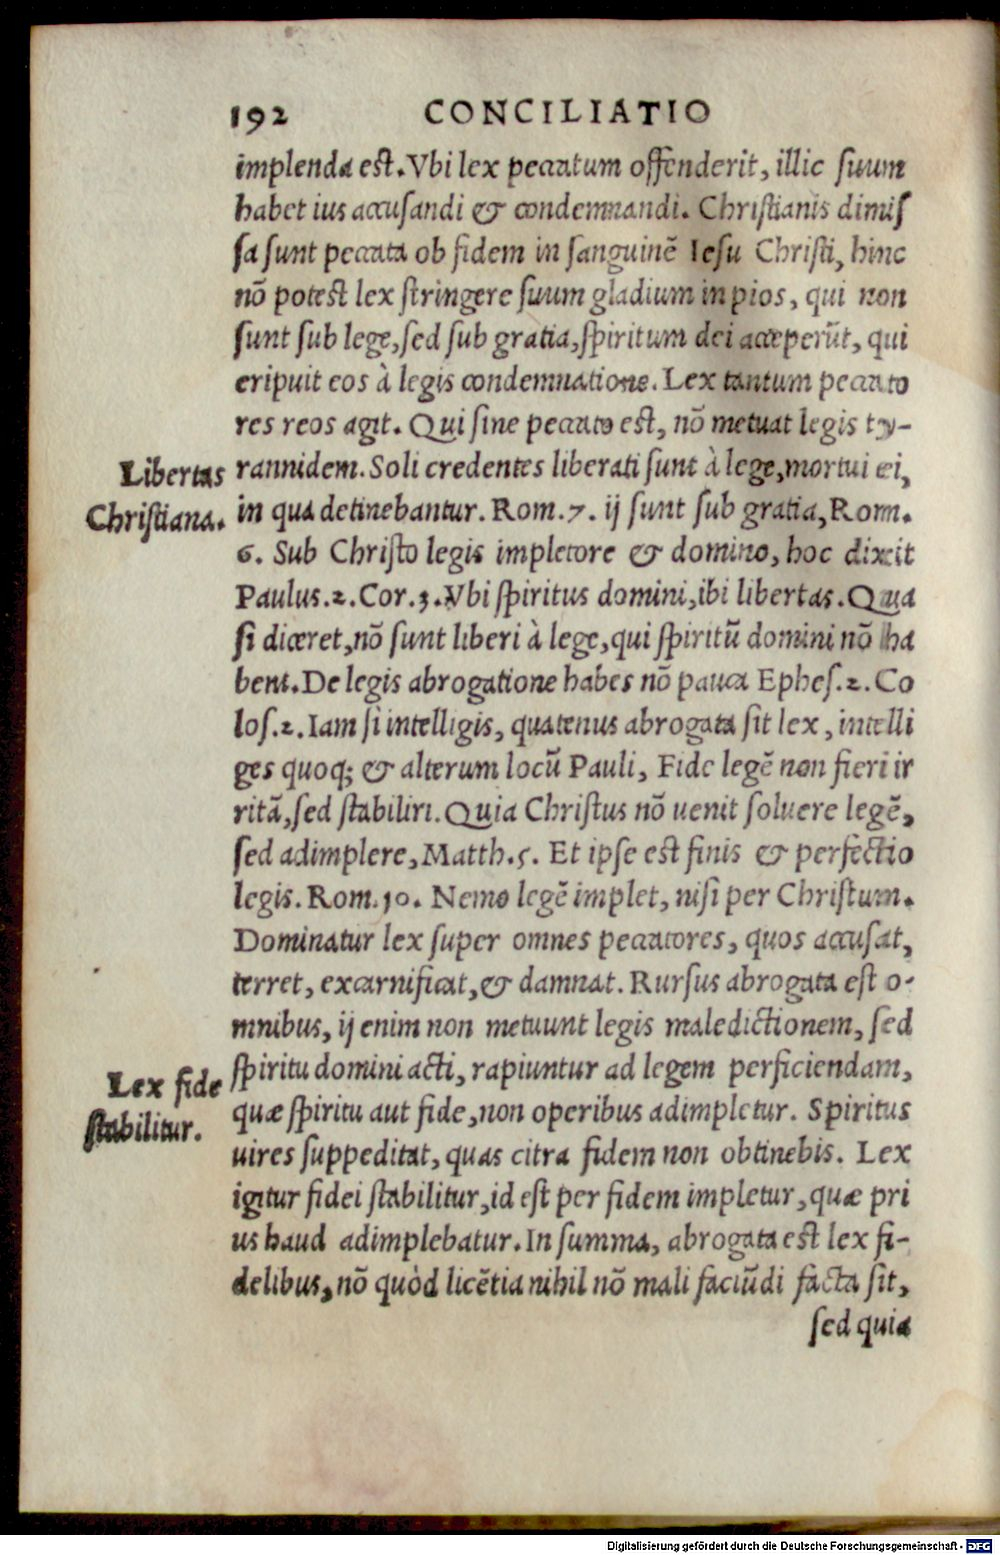 192 CONCILIATIO
implenda est. Vbi lex peccatum offenderit, illic suum
habet ius accusandi & condemnandi. Christianis dimis
sa sunt peccata ob fidem in sanguinē Iesu Christi, hinc
nō potest lex stringere suum gladium in pios, qui non
sunt sub lege, sed sub gratia, spiritum dei acceperūt, qui
eripuit eos à legis condemnatione. Lex tantum peccato
res reos agit. Qui sine peccato est, nō metuat legis ty-
Libertas
rannidem. Soli credentes liberati sunt à lege, mortui ei,
Christiana.
in qua detinebantur. Rom. 7. ij sunt sub gratia, Rom.
6. Sub Christo legis impletore & domino, hoc dixit
Paulus. 2. Cor. 3. Vbi spiritus domini, ibi libertas. Qua
si diceret, nō sunt liberi à lege, qui spiritū domini nō ha
bent. De legis abrogatione habes nō pauca Ephes. 2. Co
los. 2. Iam si intelligis, quatenus abrogata sit lex, intelli
ges quoq; & alterum locū Pauli, Fide legē non fieri ir
ritā, sed stabiliri. Quia Christus nō uenit soluere legē,
sed adimplere, Matth. 5. Et ipse est finis & perfectio
legis. Rom. 10. Nemo legē implet, nisi per Christum.
Dominatur lex super omnes peccatores, quos accusat,
terret, excarnificat, & damnat. Rursus abrogata est o-
mnibus, ij enim non metuunt legis maledictionem, sed
spiritu domini acti, rapiuntur ad legem perficiendam,
Lex fide
quæ spiritu aut fide, non operibus adimpletur. Spiritus
stabilitur.
uires suppeditat, quas citra fidem non obtinebis. Lex
igitur fidei stabilitur, id est per fidem impletur, quæ pri
us haud adimplebatur. In summa, abrogata est lex fi-
delibus, nō quòd licētia nihil nō mali faciūdi facta sit,
sed quia
Digitalisierung gefördert durch die Deutsche Forschungsgemeinschaft - DFG